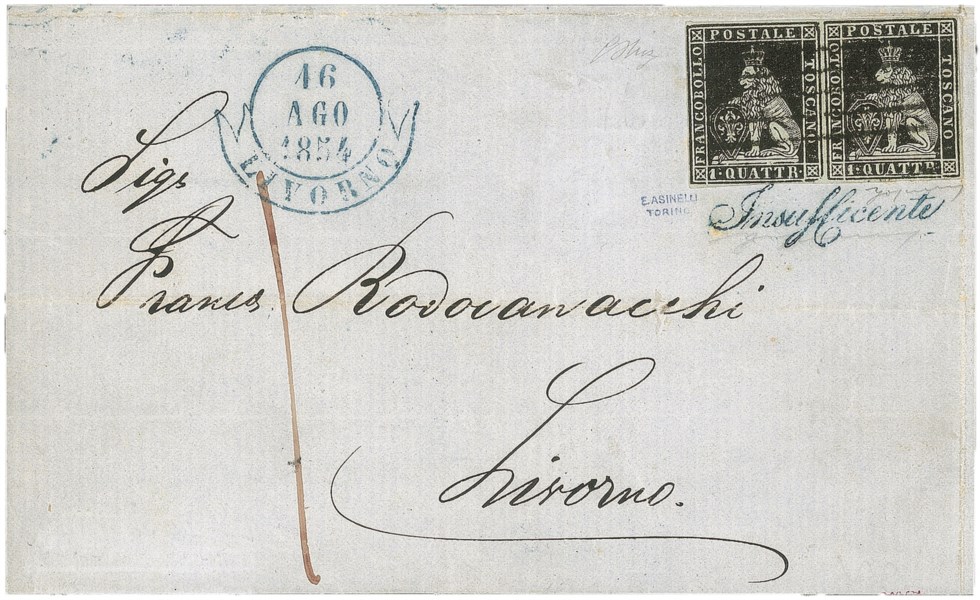 16
AGO
1854
LIVORNO
FRANCOBOLLO POSTALE TOSCANO
1 · QUATTR.
FRANCOBOLLO POSTALE TOSCANO
1 · QUATTR.
E. ASINELLI
TORINO
Insufficente
Sigr
Rodocanacchi
Livorno.